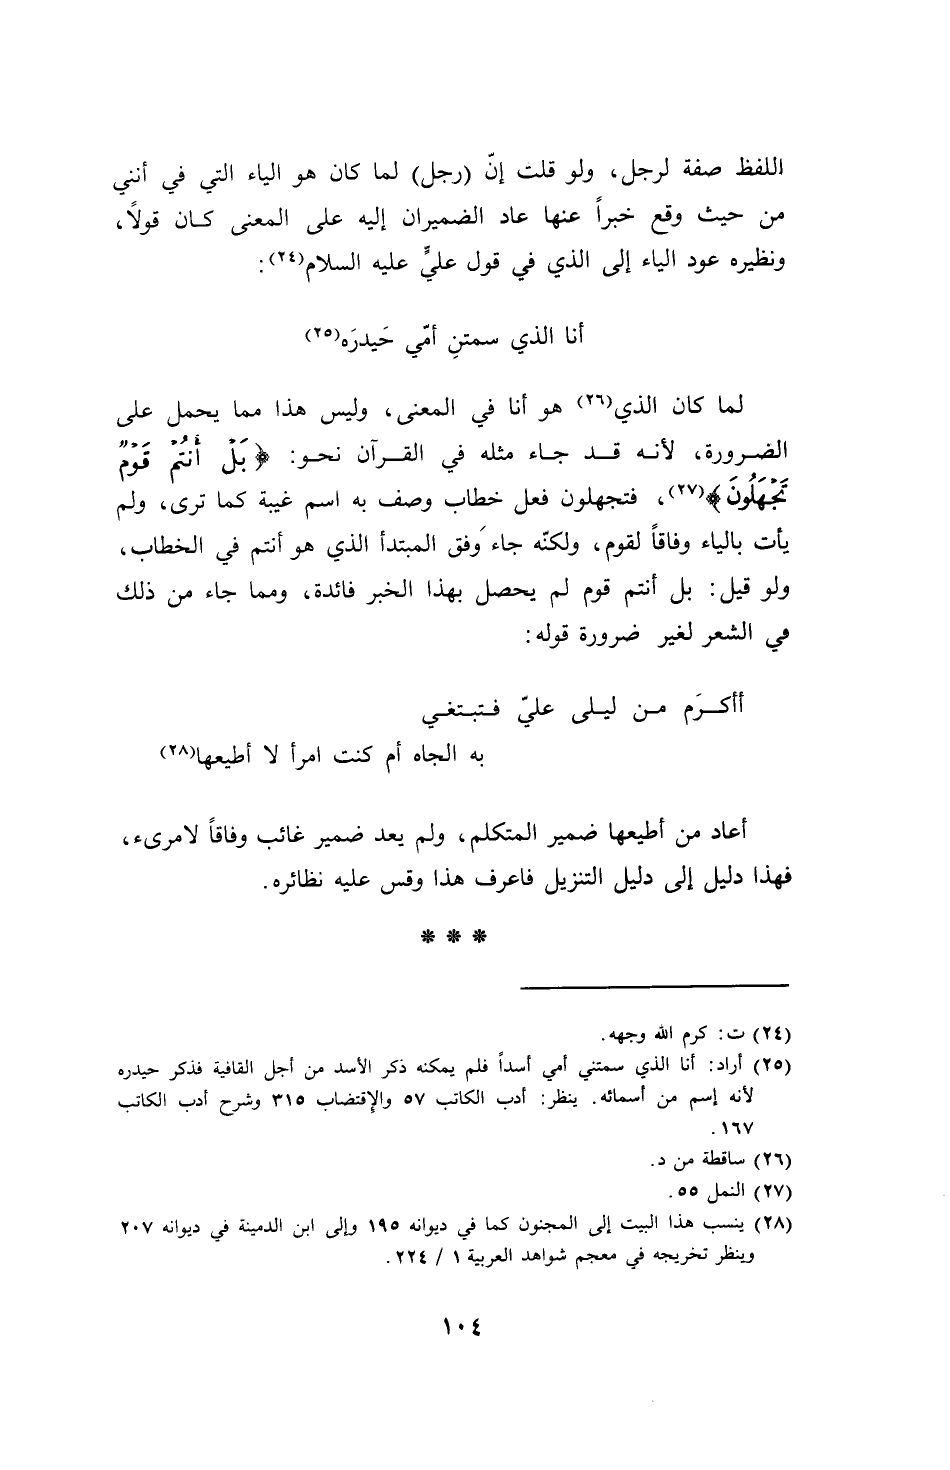 اللفظ صفة لرجل، ولو قلت إنّ (رجل) لما كان هو الياء التي في أنني
من حيث وقع خبراً عنها عاد الضميران إليه على المعنى كان قولاً،
ونظيره عود الياء إلى الذي في قول عليٍّ عليه السلام(٢٤):
أنا الذي سمتنِ أمّي حَيدرَه(٢٥)
لما كان الذي(٢٦) هو أنا في المعنى، وليس هذا مما يحمل على
الضرورة، لأنه قد جاء مثله في القرآن نحو: ﴿بَلْ أَنتُمْ قَوْمٌ
تَجْهَلُونَ﴾(٢٧)، فتجهلون فعل خطاب وصف به اسم غيبة كما ترى، ولم
يأت بالياء وفاقاً لقوم، ولكنّه جاء وَفق المبتدأ الذي هو أنتم في الخطاب،
ولو قيل: بل أنتم قوم لم يحصل بهذا الخبر فائدة، ومما جاء من ذلك
في الشعر لغير ضرورة قوله:
أأكرَم من ليلى عليّ فتبتغي
به الجاه أم كنت امرأ لا أطيعها(٢٨)
أعاد من أطيعها ضمير المتكلم، ولم يعد ضمير غائب وفاقاً لامرىء،
فهذا دليل إلى دليل التنزيل فاعرف هذا وقس عليه نظائره.
* * *
(٢٤) ت: كرم الله وجهه.
(٢٥) أراد: أنا الذي سمتني أمي أسداً فلم يمكنه ذكر الأسد من أجل القافية فذكر حيدره
لأنه إسم من أسمائه. ينظر: أدب الكاتب ٥٧ والإقتضاب ٣١٥ وشرح أدب الكاتب
١٦٧.
(٢٦) ساقطة من د.
(٢٧) النمل ٥٥.
(٢٨) ينسب هذا البيت إلى المجنون كما في ديوانه ١٩٥ وإلى ابن الدمينة في ديوانه ٢٠٧
وينظر تخريجه في معجم شواهد العربية ١ / ٢٢٤.
١٠٤